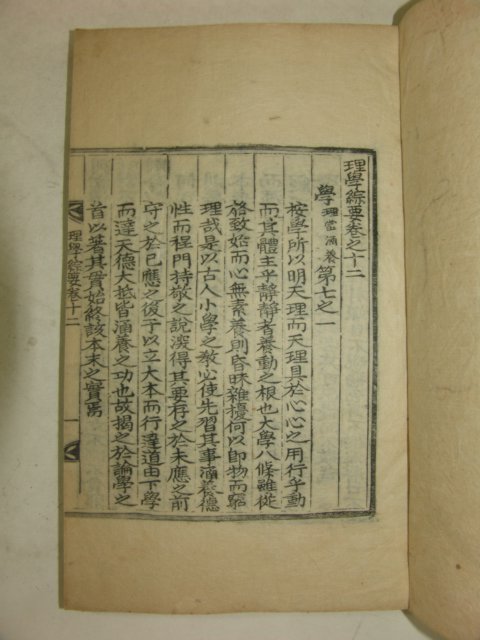 理學綜要卷之十二
學 理當涵養 第七之一
按學所以明天理而天理具於心心之用行乎動
而其體主乎靜靜者養動之根也大學八條雖從
格致始而心無素養則昏昧雜擾何以即物而窮
理哉是以古人小學之教必使先習其事涵養德
性而程門持敬之說深得其要存之於未應之前
守之於已應之後予以立大本而行達道由下學
而達天德大抵皆涵養之功也故揭之於論學之
首以著其貫始終該本末之實焉
理學綜要卷十二